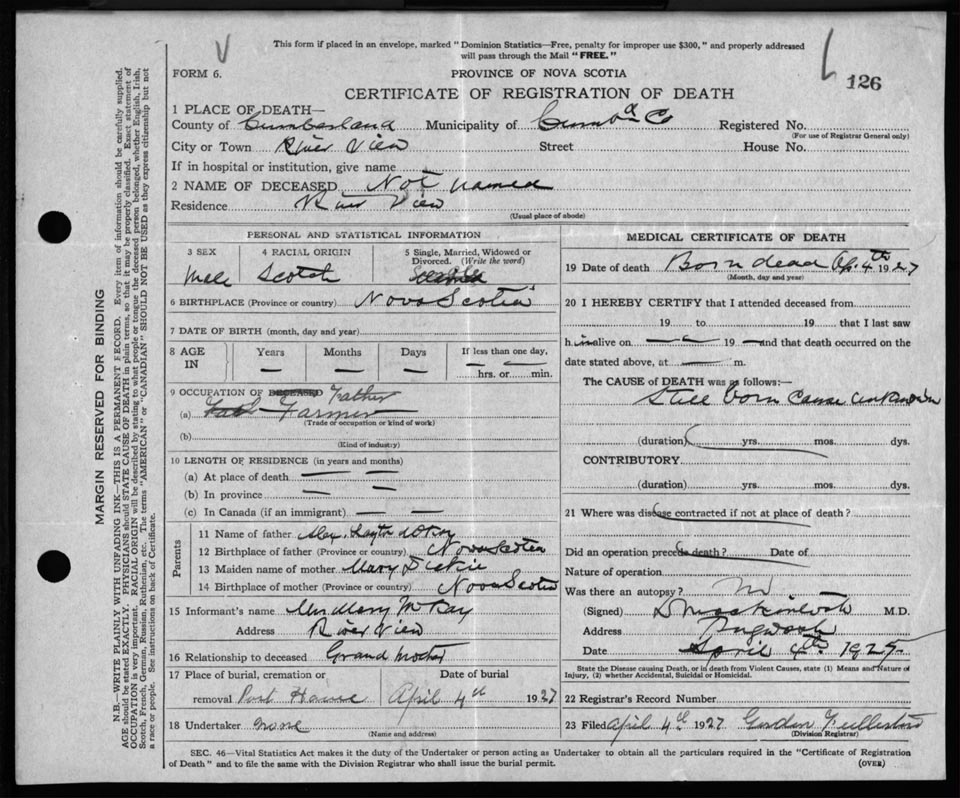 This form if placed in an envelope, marked "Dominion Statistics—Free, penalty for improper use $300," and properly addressed
will pass through the Mail "FREE."
126
FORM 6.
PROVINCE OF NOVA SCOTIA
CERTIFICATE OF REGISTRATION OF DEATH
1 PLACE OF DEATH—
County of Cumberland Municipality of Cumbd Co Registered No.
(For use of Registrar General only)
City or Town River View Street House No.
If in hospital or institution, give name
2 NAME OF DECEASED Not named
Residence River View
(Usual place of abode)
PERSONAL AND STATISTICAL INFORMATION
3 SEX
Male
4 RACIAL ORIGIN
Scotch
5 Single, Married, Widowed or
Divorced. (Write the word)
6 BIRTHPLACE (Province or country) Nova Scotia
7 DATE OF BIRTH (month, day and year)
8 AGE
IN
Years
—
Months
—
Days
—
If less than one day,
— —
hrs. or min.
9 OCCUPATION OF DECEASED Father
(a) Farmer
(Trade or occupation or kind of work)
(b)
(Kind of industry)
10 LENGTH OF RESIDENCE (in years and months)
(a) At place of death — —
(b) In province — —
(c) In Canada (if an immigrant) — —
Parents
11 Name of father Alex. Layton McKay
12 Birthplace of father (Province or country) Nova Scotia
13 Maiden name of mother Mary Dickie
14 Birthplace of mother (Province or country) Nova Scotia
15 Informant's name Mrs Mary McKay
Address River View
16 Relationship to deceased Grand Mother
17 Place of burial, cremation or
removal Port Howe
Date of burial
April 4th 1927
18 Undertaker None
(Name and address)
MEDICAL CERTIFICATE OF DEATH
19 Date of death Born dead Ap. 4th 1927
(Month, day and year)
20 I HEREBY CERTIFY that I attended deceased from
19 to 19 that I last saw
h im alive on — 19 — and that death occurred on the
date stated above, at — m.
The CAUSE of DEATH was as follows:—
Still born cause unknown
(duration) yrs. mos. dys.
CONTRIBUTORY
(duration) yrs. mos. dys.
21 Where was disease contracted if not at place of death?
Did an operation precede death? Date of
Nature of operation
Was there an autopsy? No
(Signed) M.D.
Address Pugwash
Date April 4th 1925
State the Disease causing Death, or in death from Violent Causes, state (1) Means and Nature of
Injury, (2) whether Accidental, Suicidal or Homicidal.
22 Registrar's Record Number
23 Filed April 4th 1927 Gordon Fullerton
(Division Registrar)
SEC. 46—Vital Statistics Act makes it the duty of the Undertaker or person acting as Undertaker to obtain all the particulars required in the "Certificate of Registration
of Death" and to file the same with the Division Registrar who shall issue the burial permit.
(OVER)
MARGIN RESERVED FOR BINDING
N.B.—WRITE PLAINLY WITH UNFADING INK—THIS IS A PERMANENT RECORD. Every item of information should be carefully supplied.
AGE should be stated EXACTLY. PHYSICIANS should STATE CAUSE OF DEATH in plain terms, so that it may be properly classified. Exact statement of
OCCUPATION is very important. RACIAL ORIGIN will be described by stating to what people or tongue the deceased person belonged, whether English, Irish,
Scotch, French, German, Russian, Ruthenian, etc. The terms "AMERICAN" or "CANADIAN" SHOULD NOT BE USED as they express citizenship but not
a race or people. See instructions on back of Certificate.